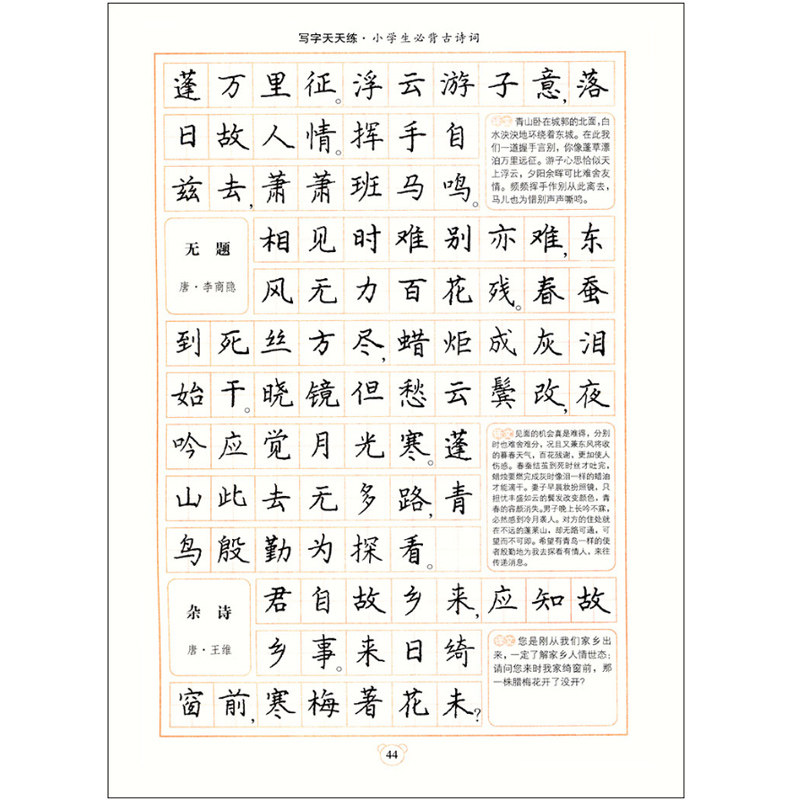 写字天天练·小学生必背古诗词
蓬万里征。浮云游子意,落
日故人情。挥手自
兹去,萧萧班马鸣。
译文 青山卧在城郭的北面,白
水泱泱地环绕着东城。在此我
们一道握手言别,你像蓬草漂
泊万里远征。游子心思恰似天
上浮云,夕阳余晖可比难舍友
情。频频挥手作别从此离去,
马儿也为惜别声声嘶鸣。
无题
唐·李商隐
相见时难别亦难,东
风无力百花残。春蚕
到死丝方尽,蜡炬成灰泪
始干。晓镜但愁云鬓改,夜
吟应觉月光寒。蓬
山此去无多路,青
鸟殷勤为探看。
译文 见面的机会真是难得,分别
时也难舍难分,况且又兼东风将收
的暮春天气,百花残谢,更加使人
伤感。春蚕结茧到死时丝才吐完,
蜡烛要燃完成灰时像泪一样的蜡油
才能滴干。妻子早晨妆扮照镜,只
担忧丰盛如云的鬓发改变颜色,青
春的容颜消失。男子晚上长吟不寐,
必然感到冷月袭人。对方的住处就
在不远的蓬莱山,却无路可通,可
望而不可即。希望有青鸟一样的使
者殷勤地为我去探看有情人,来往
传递消息。
杂诗
唐·王维
君自故乡来,应知故
乡事。来日绮
窗前,寒梅著花未?
译文 您是刚从我们家乡出
来,一定了解家乡人情世态;
请问您来时我家绮窗前,那
一株腊梅花开了没开?
44